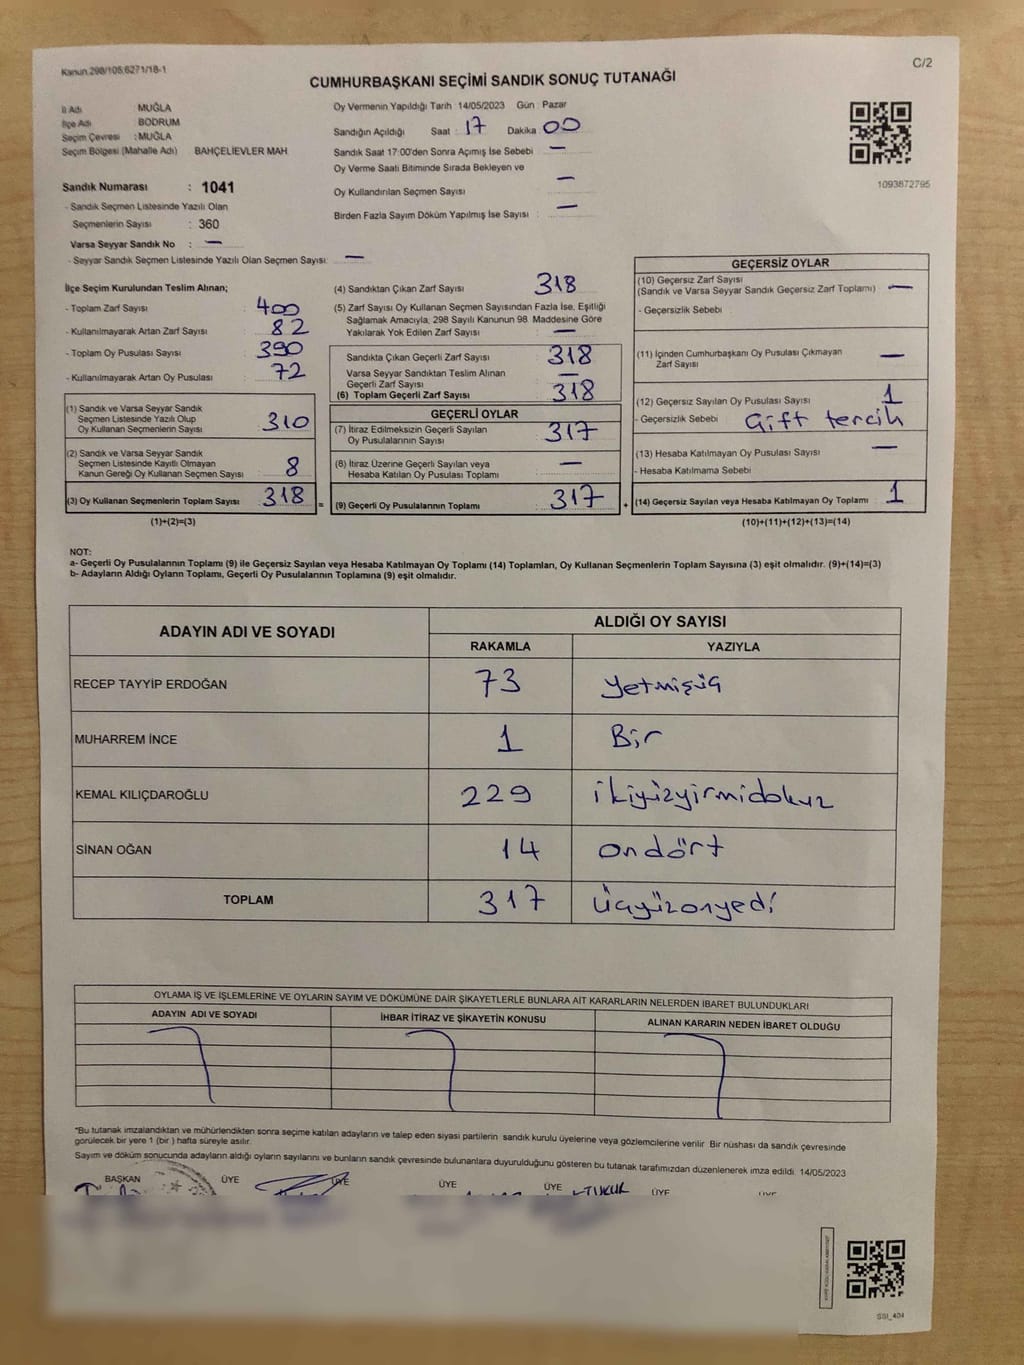 Kanun.298/105;6271/18-1
C/2
CUMHURBAŞKANI SEÇİMİ SANDIK SONUÇ TUTANAĞI
İl Adı : MUĞLA
İlçe Adı : BODRUM
Seçim Çevresi : MUĞLA
Seçim Bölgesi (Mahalle Adı) BAHÇELİEVLER MAH
Sandık Numarası : 1041
- Sandık Seçmen Listesinde Yazılı Olan
Seçmenlerin Sayısı : 360
Varsa Seyyar Sandık No : —
- Seyyar Sandık Seçmen Listesinde Yazılı Olan Seçmen Sayısı: —
Oy Vermenin Yapıldığı Tarih 14/05/2023 Gün : Pazar
Sandığın Açıldığı Saat : 17 Dakika 00
Sandık Saat 17:00'den Sonra Açımış İse Sebebi —
Oy Verme Saati Bitiminde Sırada Bekleyen ve
Oy Kullandırılan Seçmen Sayısı —
Birden Fazla Sayım Döküm Yapılmış İse Sayısı : —
1093872795
İlçe Seçim Kurulundan Teslim Alınan;
- Toplam Zarf Sayısı : 400
- Kullanılmayarak Artan Zarf Sayısı : 82
- Toplam Oy Pusulası Sayısı : 390
- Kullanılmayarak Artan Oy Pusulası : 72
(1) Sandık ve Varsa Seyyar Sandık
Seçmen Listesinde Yazılı Olup
Oy Kullanan Seçmenlerin Sayısı : 310
(2) Sandık ve Varsa Seyyar Sandık
Seçmen Listesinde Kayıtlı Olmayan
Kanun Gereği Oy Kullanan Seçmen Sayısı : 8
(3) Oy Kullanan Seçmenlerin Toplam Sayısı : 318
(1)+(2)=(3)
(4) Sandıktan Çıkan Zarf Sayısı 318
(5) Zarf Sayısı Oy Kullanan Seçmen Sayısından Fazla İse, Eşitliği
Sağlamak Amacıyla, 298 Sayılı Kanunun 98. Maddesine Göre
Yakılarak Yok Edilen Zarf Sayısı : —
Sandıkta Çıkan Geçerli Zarf Sayısı : 318
Varsa Seyyar Sandıktan Teslim Alınan
Geçerli Zarf Sayısı —
(6) Toplam Geçerli Zarf Sayısı : 318
GEÇERLİ OYLAR
(7) İtiraz Edilmeksizin Geçerli Sayılan
Oy Pusulalarının Sayısı : 317
(8) İtiraz Üzerine Geçerli Sayılan veya
Hesaba Katılan Oy Pusulası Toplamı : —
= (9) Geçerli Oy Pusulalarının Toplamı : 317 +
GEÇERSİZ OYLAR
(10) Geçersiz Zarf Sayısı
(Sandık ve Varsa Seyyar Sandık Geçersiz Zarf Toplamı) : —
- Geçersizlik Sebebi
(11) İçinden Cumhurbaşkanı Oy Pusulası Çıkmayan
Zarf Sayısı —
(12) Geçersiz Sayılan Oy Pusulası Sayısı : 1
- Geçersizlik Sebebi Çift tercih
(13) Hesaba Katılmayan Oy Pusulası Sayısı : —
- Hesaba Katılmama Sebebi
(14) Geçersiz Sayılan veya Hesaba Katılmayan Oy Toplamı : 1
(10)+(11)+(12)+(13)=(14)
NOT:
a- Geçerli Oy Pusulalarının Toplamı (9) ile Geçersiz Sayılan veya Hesaba Katılmayan Oy Toplamı (14) Toplamları, Oy Kullanan Seçmenlerin Toplam Sayısına (3) eşit olmalıdır. (9)+(14)=(3)
b- Adayların Aldığı Oyların Toplamı, Geçerli Oy Pusulalarının Toplamına (9) eşit olmalıdır.
ADAYIN ADI VE SOYADI
ALDIĞI OY SAYISI
RAKAMLA YAZIYLA
RECEP TAYYİP ERDOĞAN 73 Yetmişüç
MUHARREM İNCE 1 Bir
KEMAL KILIÇDAROĞLU 229 ikiyüzyirmidokuz
SİNAN OĞAN 14 ondört
TOPLAM 317 üçyüzonyedi
OYLAMA İŞ VE İŞLEMLERİNE VE OYLARIN SAYIM VE DÖKÜMÜNE DAİR ŞİKAYETLERLE BUNLARA AİT KARARLARIN NELERDEN İBARET BULUNDUKLARI
ADAYIN ADI VE SOYADI İHBAR İTİRAZ VE ŞİKAYETİN KONUSU ALINAN KARARIN NEDEN İBARET OLDUĞU
*Bu tutanak imzalandıktan ve mühürlendikten sonra seçime katılan adayların ve talep eden siyasi partilerin sandık kurulu üyelerine veya gözlemcilerine verilir Bir nüshası da sandık çevresinde
görülecek bir yere 1 (bir ) hafta süreyle asılır.
Sayım ve döküm sonucunda adayların aldığı oyların sayılarını ve bunların sandık çevresinde bulunanlara duyurulduğunu gösteren bu tutanak tarafımızdan düzenlenerek imza edildi 14/05/2023
BAŞKAN ÜYE ÜYE ÜYE ÜYE ÜYE
SSI_404